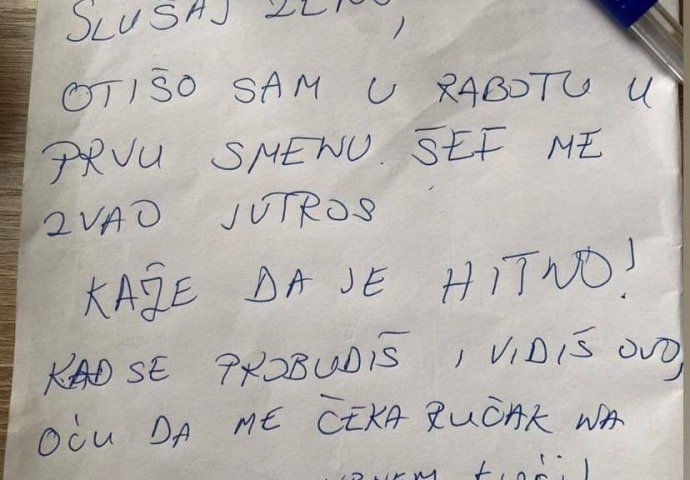 SLUŠAJ ŽENO,
OTIŠO SAM U RABOTU U
PRVU SMENU. ŠEF ME
ZVAO JUTROS
KAŽE DA JE HITNO!
KAD SE PROBUDIŠ I VIDIŠ OVO,
OĆU DA ME ČEKA RUČAK NA